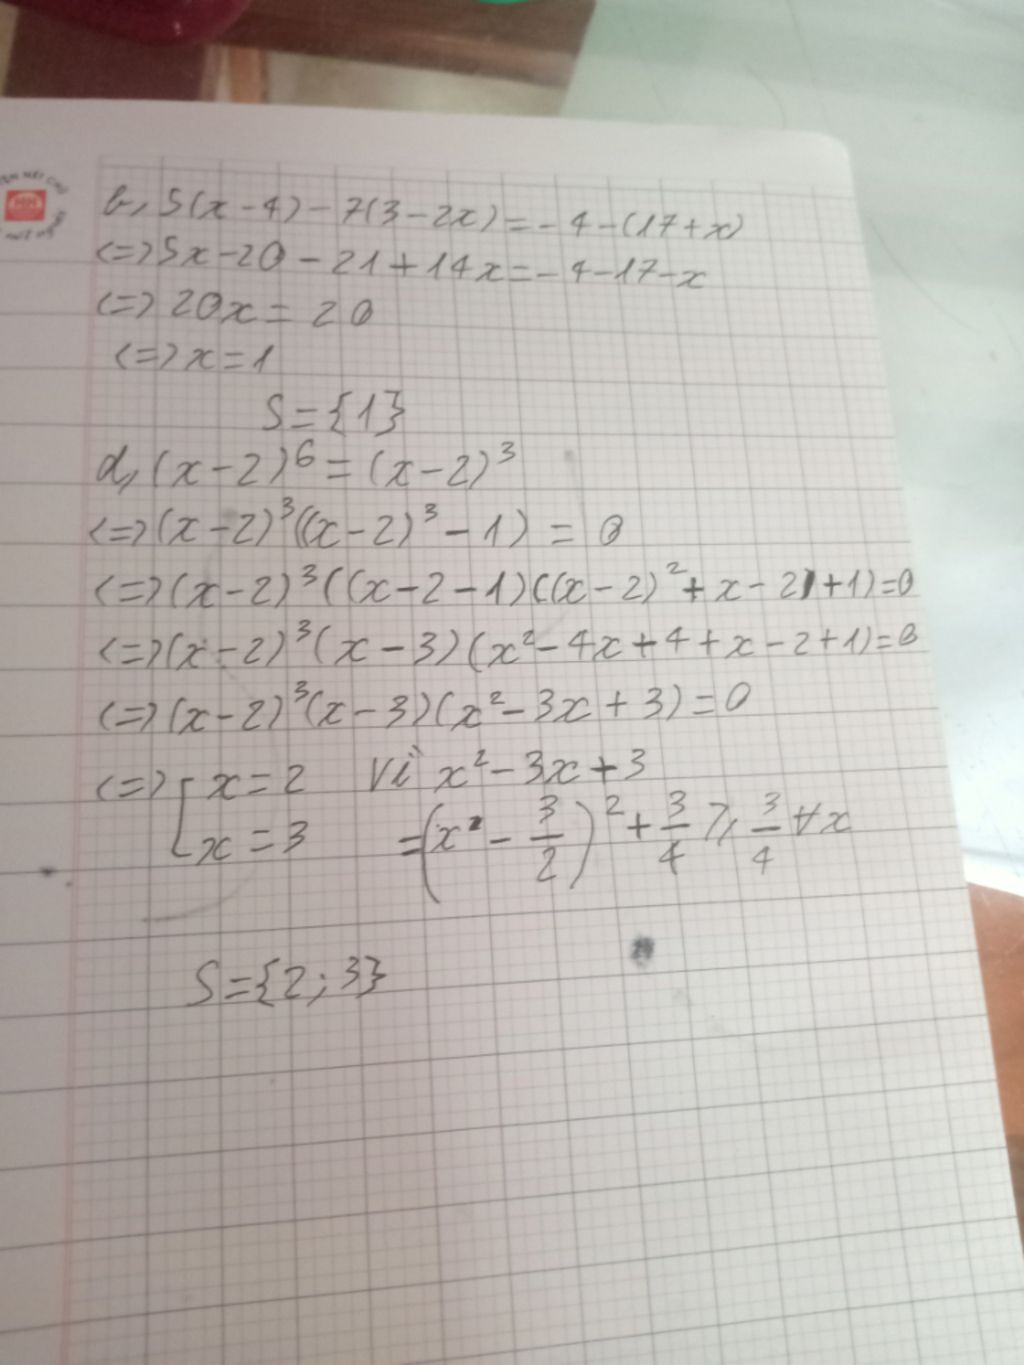 b, 5(x-4)-7(3-2x)=-4-(17+x)
<=>5x-20-21+14x=-4-17-x
<=>20x=20
<=>x=1
S={1}
d, (x-2)⁶=(x-2)³
<=>(x-2)³((x-2)³-1)=0
<=>(x-2)³((x-2-1)((x-2)²+x-2)+1)=0
<=>(x-2)³(x-3)(x²-4x+4+x-2+1)=0
<=>(x-2)³(x-3)(x²-3x+3)=0
<=>[x=2 Vì x²-3x+3
x=3 =(x²-3/2)²+3/4⩾3/4∀x
S={2;3}